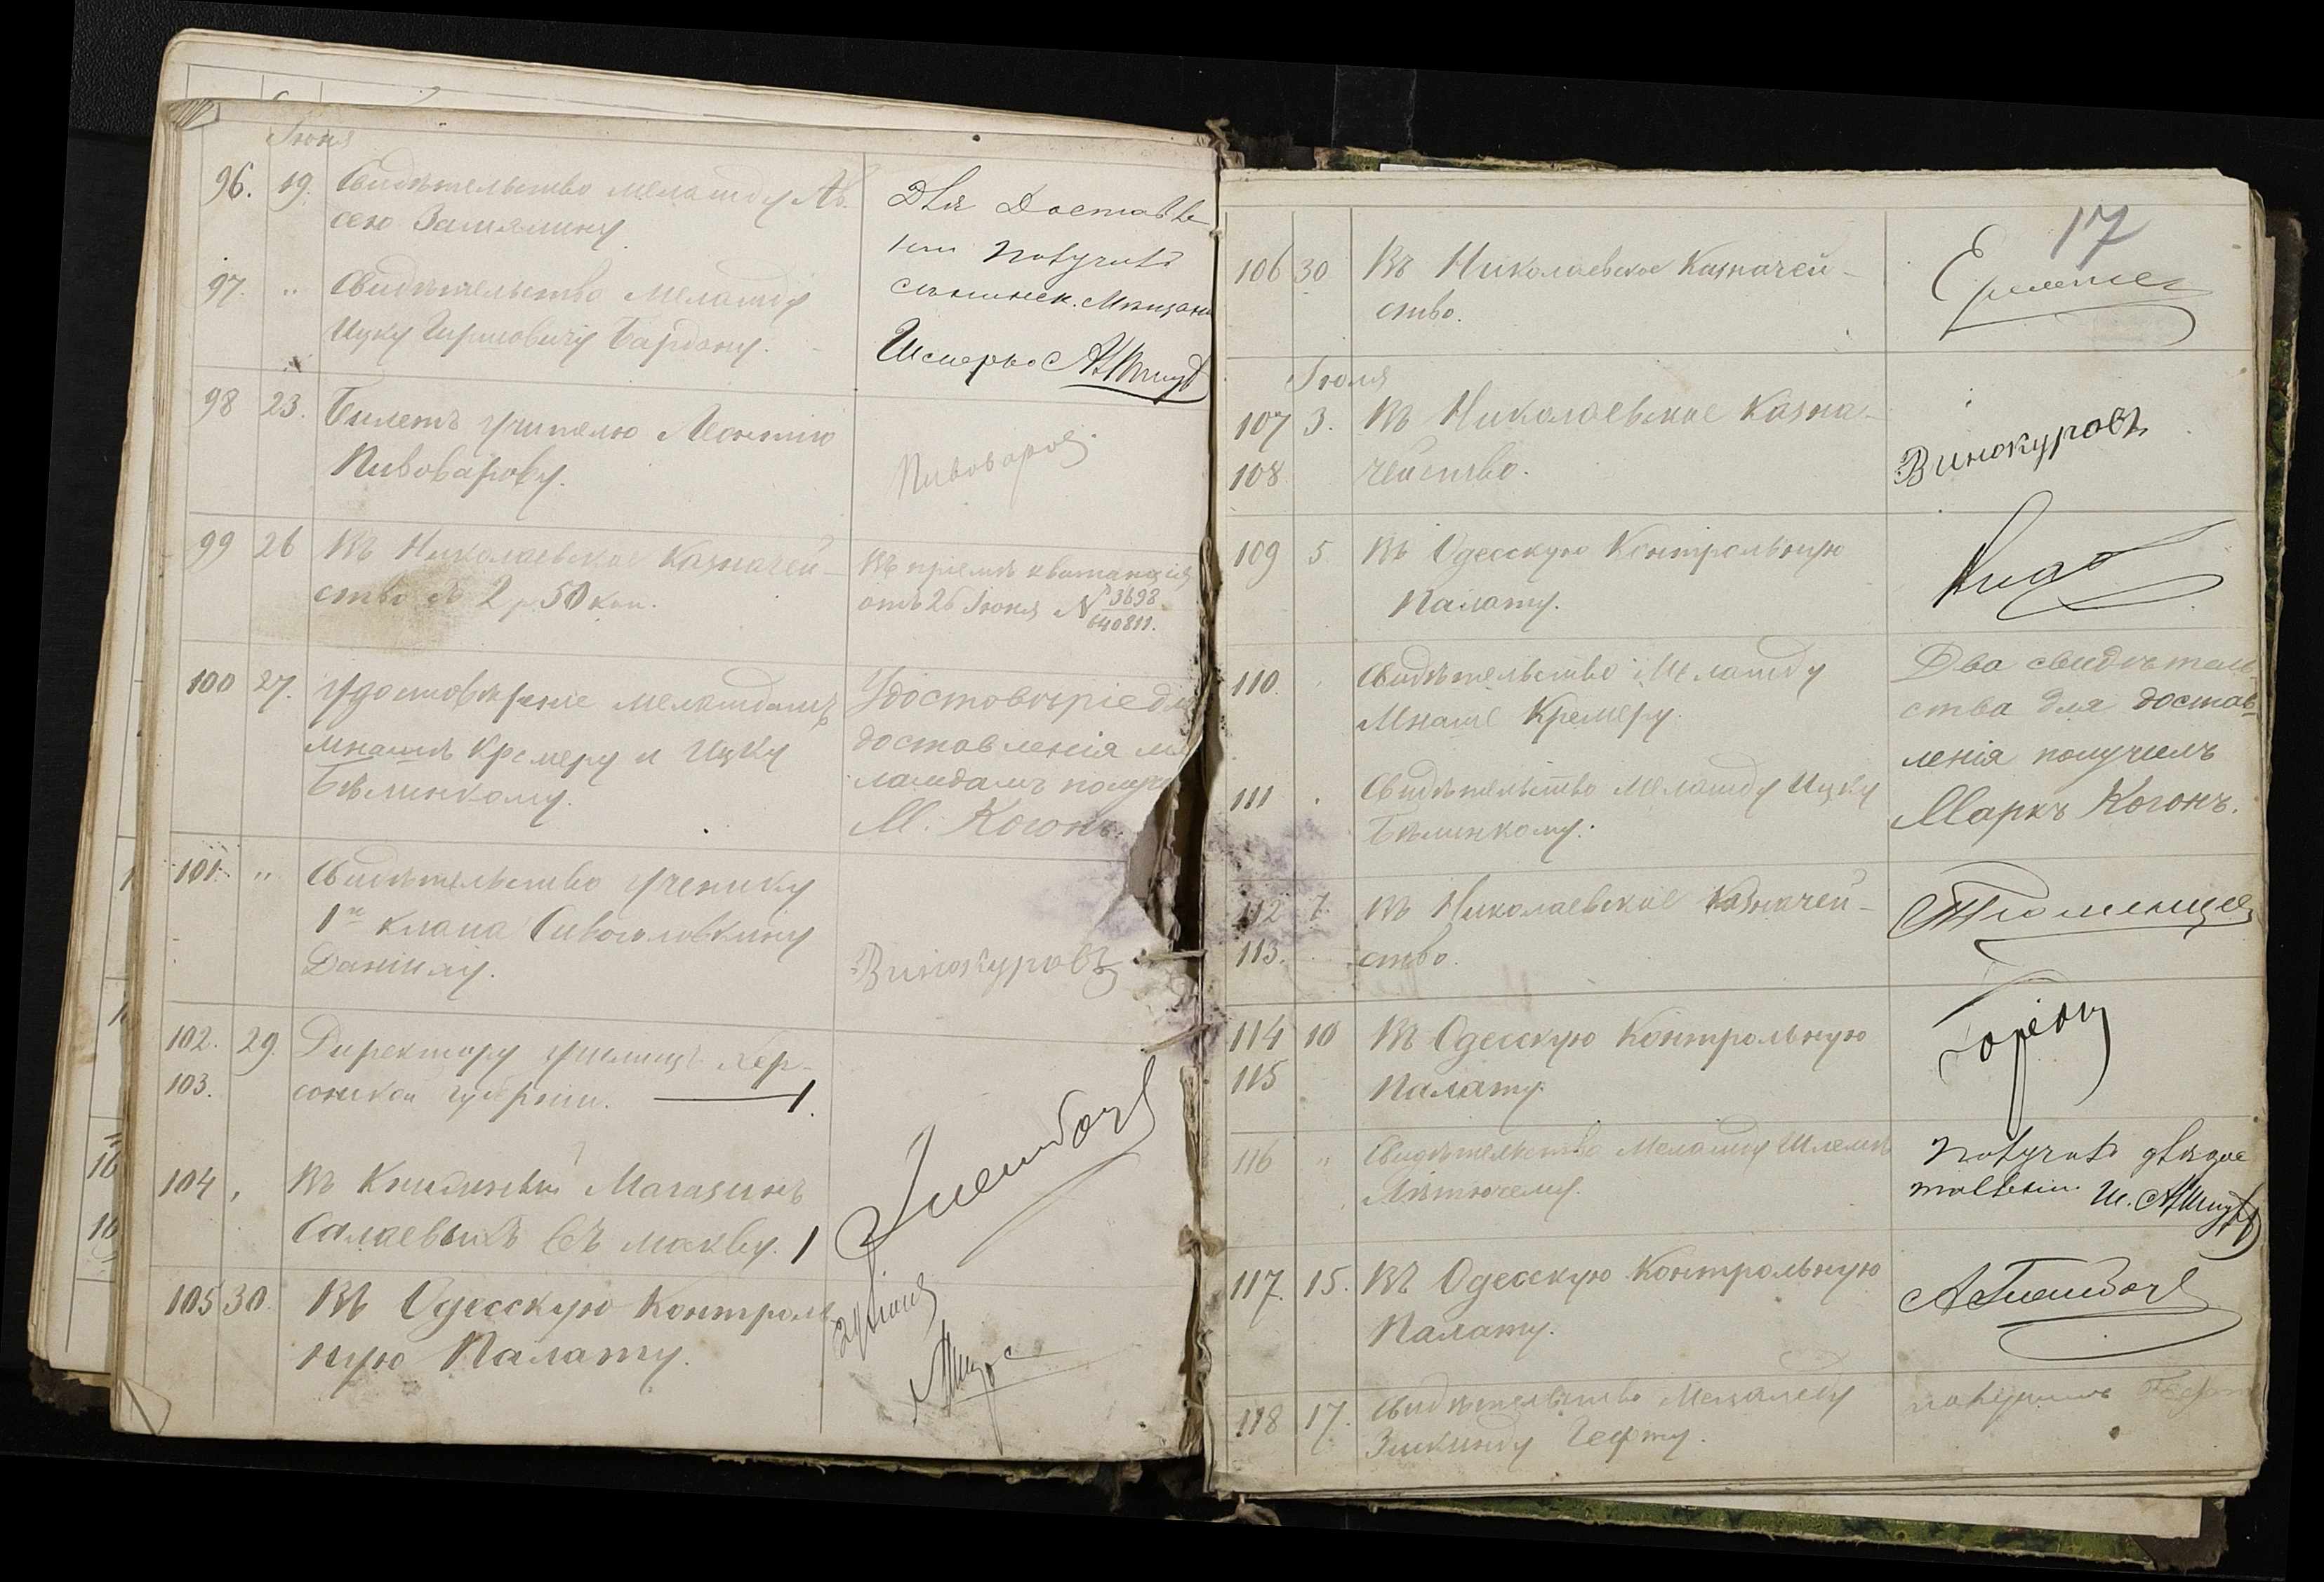 Іюня
96. 19. Свидѣтельство меламду Ав-
сею Замялину.
Для Доставле
нии получилъ
97. " Свидѣтельство меламду
Ицку Гиршовичу Бардону.
98 23. Билетъ учителю Леонтію
Пивоварову.
Пивоваров
99 26 Въ Николаевское Казначей-
ство 2 р 50 коп.
Въ пріемѣ квитанція
отъ 26 Іюня № 3698
640811.
100 27. Удостовѣреніе меламдамъ
Мнашѣ Кремеру и Ицку
Бѣлинкому.
Удостовѣріе для
доставленія ме
ламдамъ получ
М. Когонъ.
101 " Свидѣтельство ученику
1го класа Сивоголовкину
Даніилу.
Винокуровъ
102. 29. Директору училищъ Хер-
103. сонской губерніи. 1.
104 , Въ Книжный Магазинъ
Салаевыхъ въ Москву. 1
29 Іюня
105 30. Въ Одесскую Контроль
ную Палату.
17
106 30 Въ Николаевское Казначей-
ство.
Іюля
107 3. Въ Николаевское Казна-
108 чейство.
Винокуровъ
109 5 Въ Одесскую Контрольную
Палату.
110. Свидѣтельство Меламду
Мнаше Кремеру.
111 . Свидѣтельство Меламду Ицку
Бѣлинкому.
Два свидѣтель
ства для достав-
ленія получилъ
Маркъ Когонъ.
112 7. Въ Николаевское Казначей-
113. ство.
114 10 Въ Одесскую Контрольную
115 Палату.
116 " Свидѣтельство Меламду Шлемѣ
получилъ
117. 15. Въ Одесскую Контрольную
Палату.
118 17. Свидѣтельство Меламеду
Зискинду Герту.
получилъ